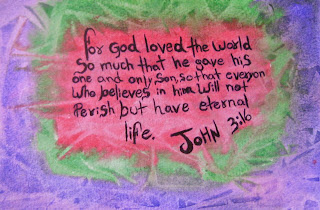 for God loved the world
so much that he gave his
one and only Son, so that everyon
who believes in him will not
Perish but have eternal
life. JOHN 3:16